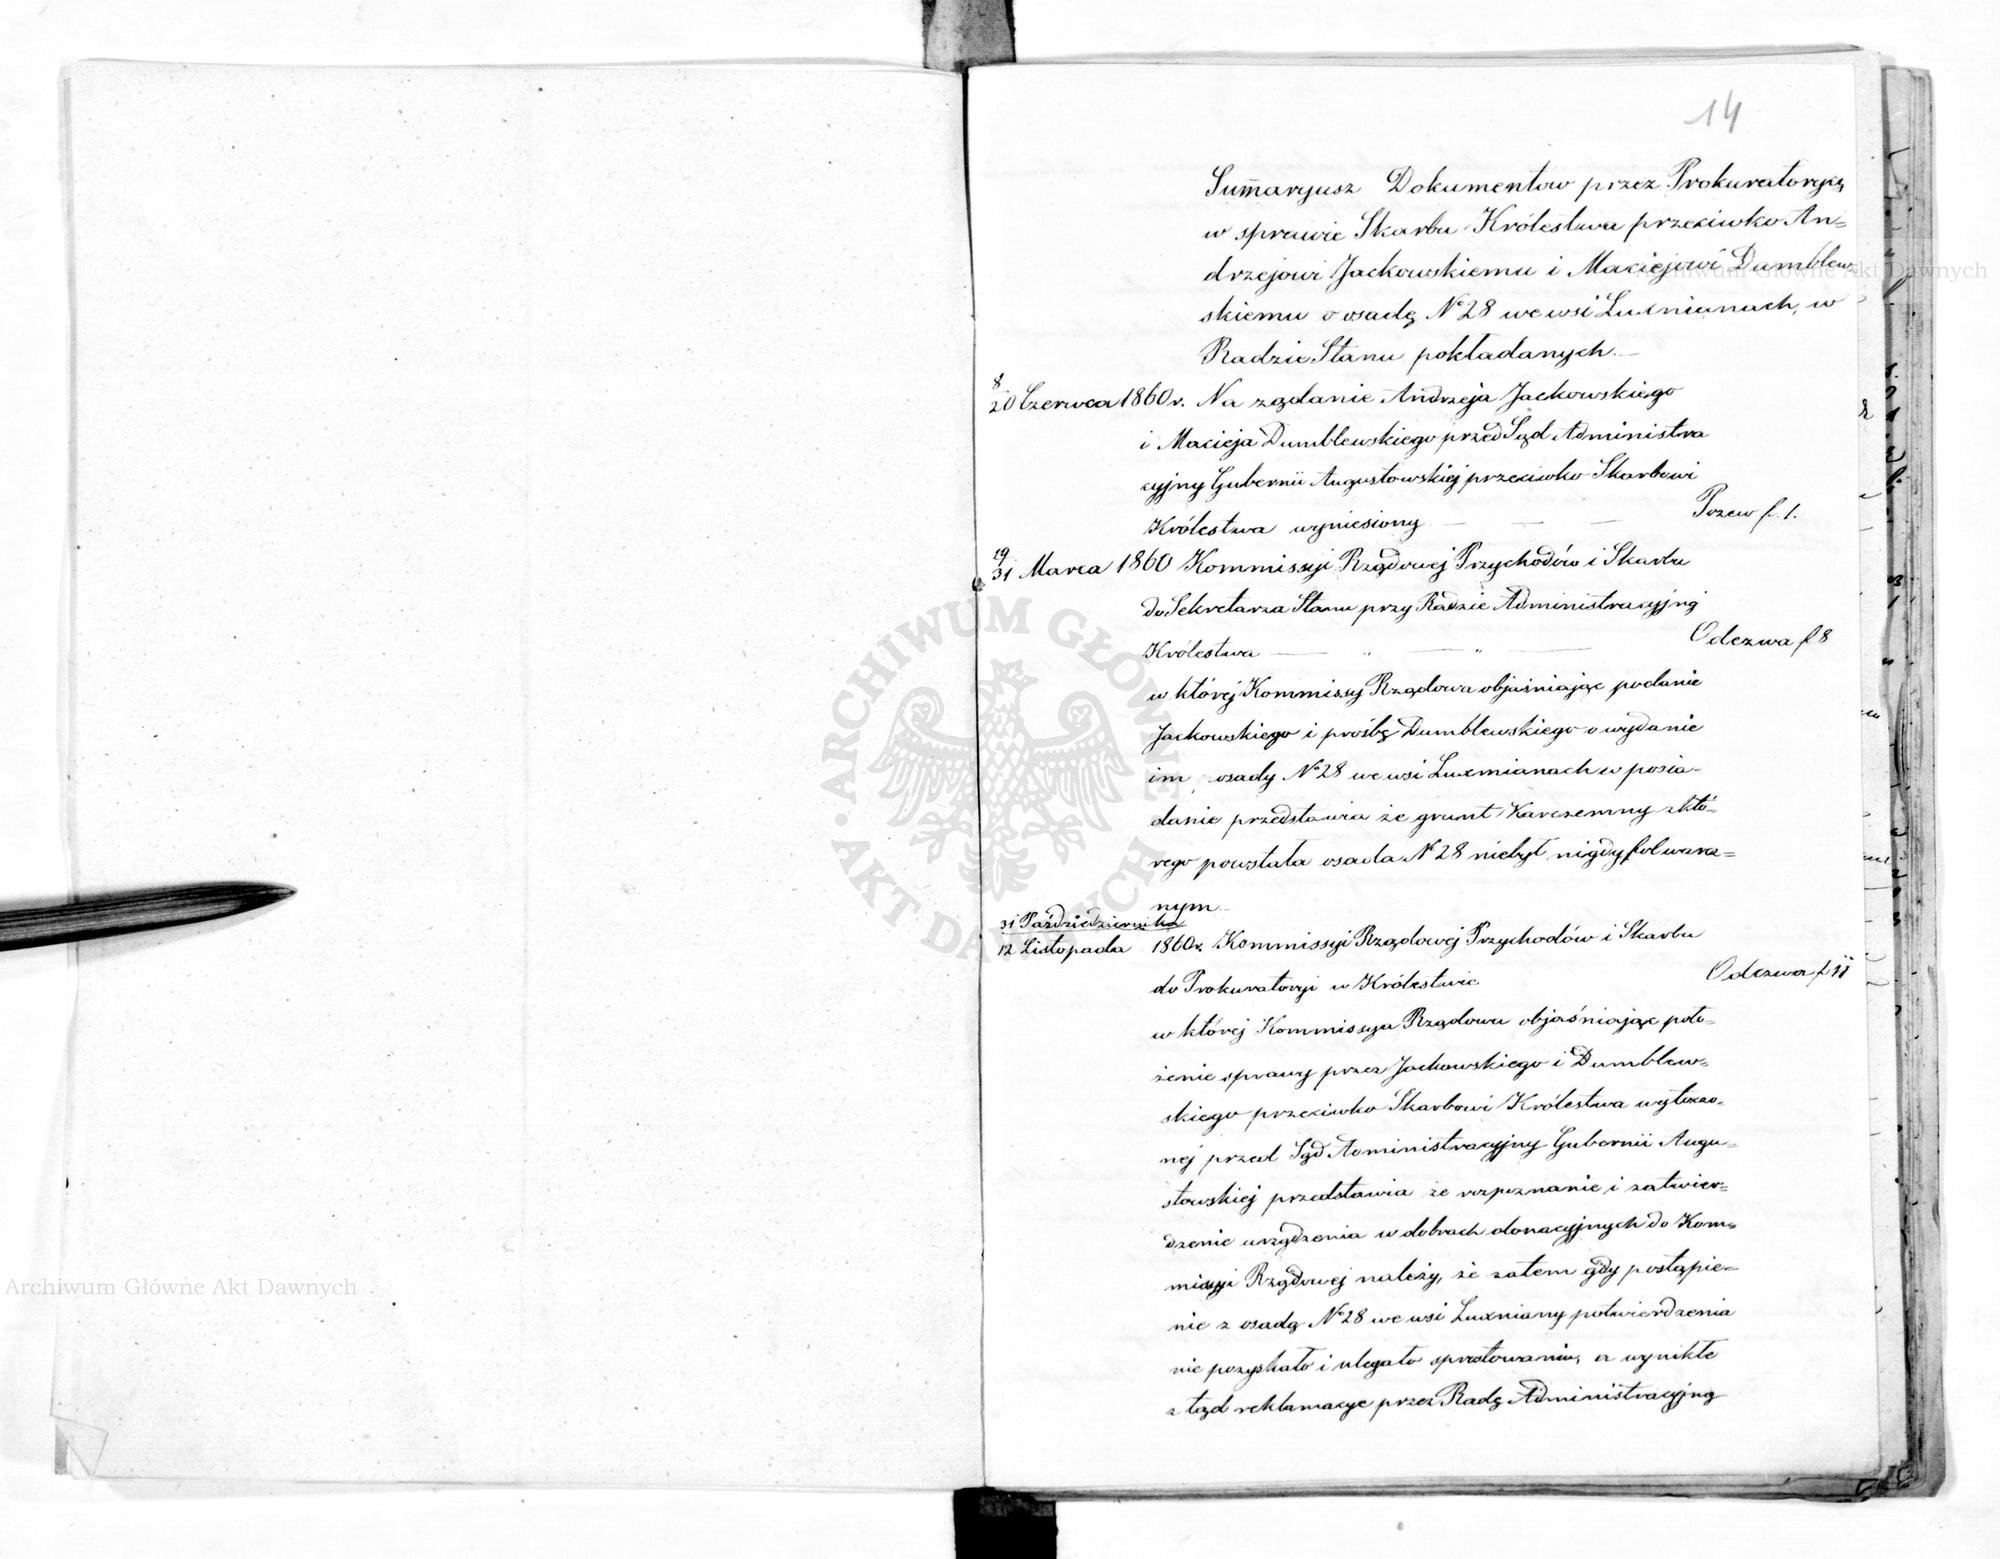 14
Sum̄aryusz Dokumentow przez Prokuratoryą
w sprawie Skarbu Królestwa przeciwko An=
drzejowi Jackowskiemu i Maciejowi Dumblew
skiemu o osadę No 28 we wsi Luxnianach, w
Radzie Stanu pokładanych.—
8/20 Czerwca 1860 r. Na żądanie Andrzeja Jackowskiego
i Macieja Dumblewskiego przed Sąd Administra
cyjny Gubernii Augustowskiej przeciwko Skarbowi
Królestwa wyniesiony — — — Pozew f. 1.
19/31 Marca 1860 Kommissyi Rządowej Przychodów i Skarbu
do Sekretarza Stanu przy Radzie Administracyjnej
Królestwa — " — " — Odezwa f 8
w której Kommissy Rządowa objaśniając podanie
Jackowskiego i prośbę Dumblewskiego o wydanie
im osady No 28 we wsi Luxmianach w posia-
danie przedstawia że grunt Karczemny z któ=
rego powstała osada No 28 niebył nigdy folwarcz=
nym
31 Październzika
12 Listopada 1860 r. Kommissyi Rządowej Przychodów i Skarbu
do Prokuratoryi w Królestwie Odezwa f 11
w której Kommissya Rządowa objaśniając poło=
żenie sprawy przez Jackowskiego i Dumblew=
skiego przeciwko Skarbowi Królestwa wytoczo=
nej przed Sąd Administracyjny Gubernii Augu=
stowskiej przedstawia że rozpoznanie i zatwier=
dzenie urządzenia w dobrach donacyjnych do Kom=
missyi Rządowej należy, że zatem gdy postąpie=
nie z osadą No 28 we wsi Luxniany potwierdzenia
nie pozyskało i ulegało sprostowaniu, a wynikłe
ztąd reklamacye przez Radę Administracyjną
Archiwum Główne Akt Dawnych
Archiwum Główne Akt Dawnych
ARCHIWUM GŁÓWNE AKT DAWNYCH